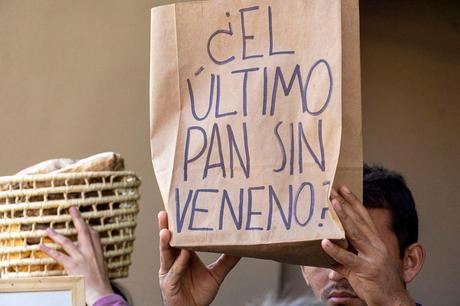 ¿EL
ÚLTIMO
PAN SIN
VENENO?